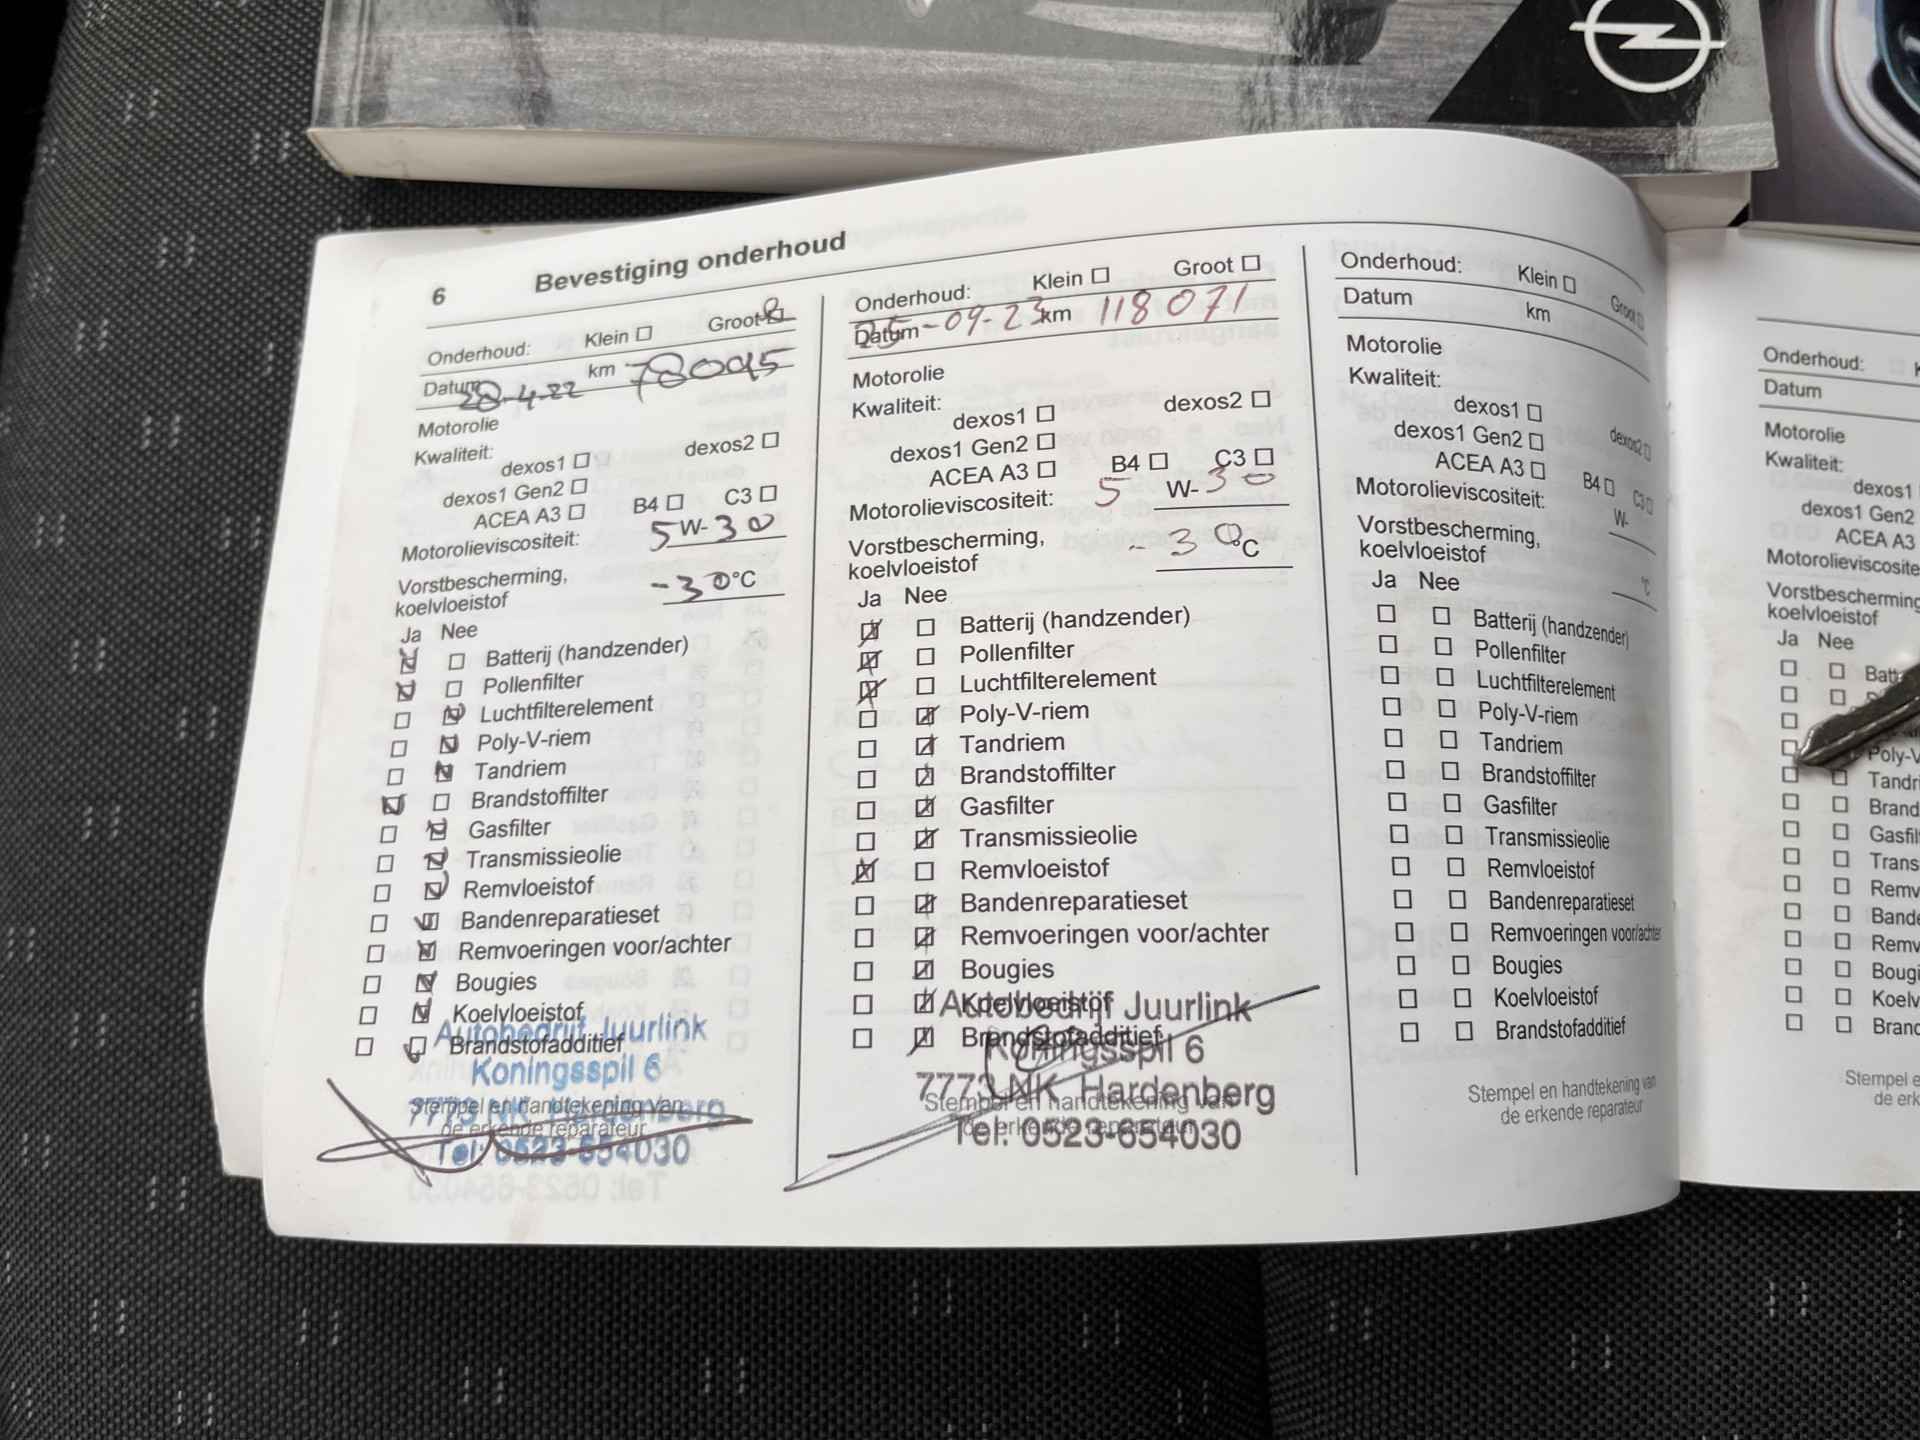 6 Bevestiging onderhoud
Onderhoud: Klein Groot
Datum 28-4-22 km 78095
Motorolie
Kwaliteit:
dexos1 dexos2
dexos1 Gen2
ACEA A3 B4 C3
Motorolieviscositeit: 5 W- 30
Vorstbescherming,
koelvloeistof -30 °C
Ja Nee
Batterij (handzender)
Pollenfilter
Luchtfilterelement
Poly-V-riem
Tandriem
Brandstoffilter
Gasfilter
Transmissieolie
Remvloeistof
Bandenreparatieset
Remvoeringen voor/achter
Bougies
Koelvloeistof
Brandstofadditief
Autobedrijf Juurlink
Koningsspil 6
7773 NK Hardenberg
Tel: 0523-654030
Stempel en handtekening van
de erkende reparateur
Onderhoud: Klein Groot
Datum 25-09-23 km 118071
Motorolie
Kwaliteit:
dexos1 dexos2
dexos1 Gen2
ACEA A3 B4 C3
Motorolieviscositeit: 5 W- 30
Vorstbescherming,
koelvloeistof -30 °C
Ja Nee
Batterij (handzender)
Pollenfilter
Luchtfilterelement
Poly-V-riem
Tandriem
Brandstoffilter
Gasfilter
Transmissieolie
Remvloeistof
Bandenreparatieset
Remvoeringen voor/achter
Bougies
Koelvloeistof
Brandstofadditief
Autobedrijf Juurlink
Koningsspil 6
7773 NK Hardenberg
Tel: 0523-654030
Stempel en handtekening van
de erkende reparateur
Onderhoud: Klein Groot
Datum km
Motorolie
Kwaliteit:
dexos1 dexos2
dexos1 Gen2
ACEA A3 B4 C3
Motorolieviscositeit: W-
Vorstbescherming,
koelvloeistof °C
Ja Nee
Batterij (handzender)
Pollenfilter
Luchtfilterelement
Poly-V-riem
Tandriem
Brandstoffilter
Gasfilter
Transmissieolie
Remvloeistof
Bandenreparatieset
Remvoeringen voor/achter
Bougies
Koelvloeistof
Brandstofadditief
Stempel en handtekening van
de erkende reparateur
Onderhoud: K
Datum
Motorolie
Kwaliteit:
dexos1
dexos1 Gen2
ACEA A3
Motorolieviscosite
Vorstbescherming
koelvloeistof
Ja Nee
Batt
Poly-V
Tandri
Brand
Gasfil
Trans
Remv
Bande
Remv
Bougi
Koelv
Brand
Stempel e
de erk